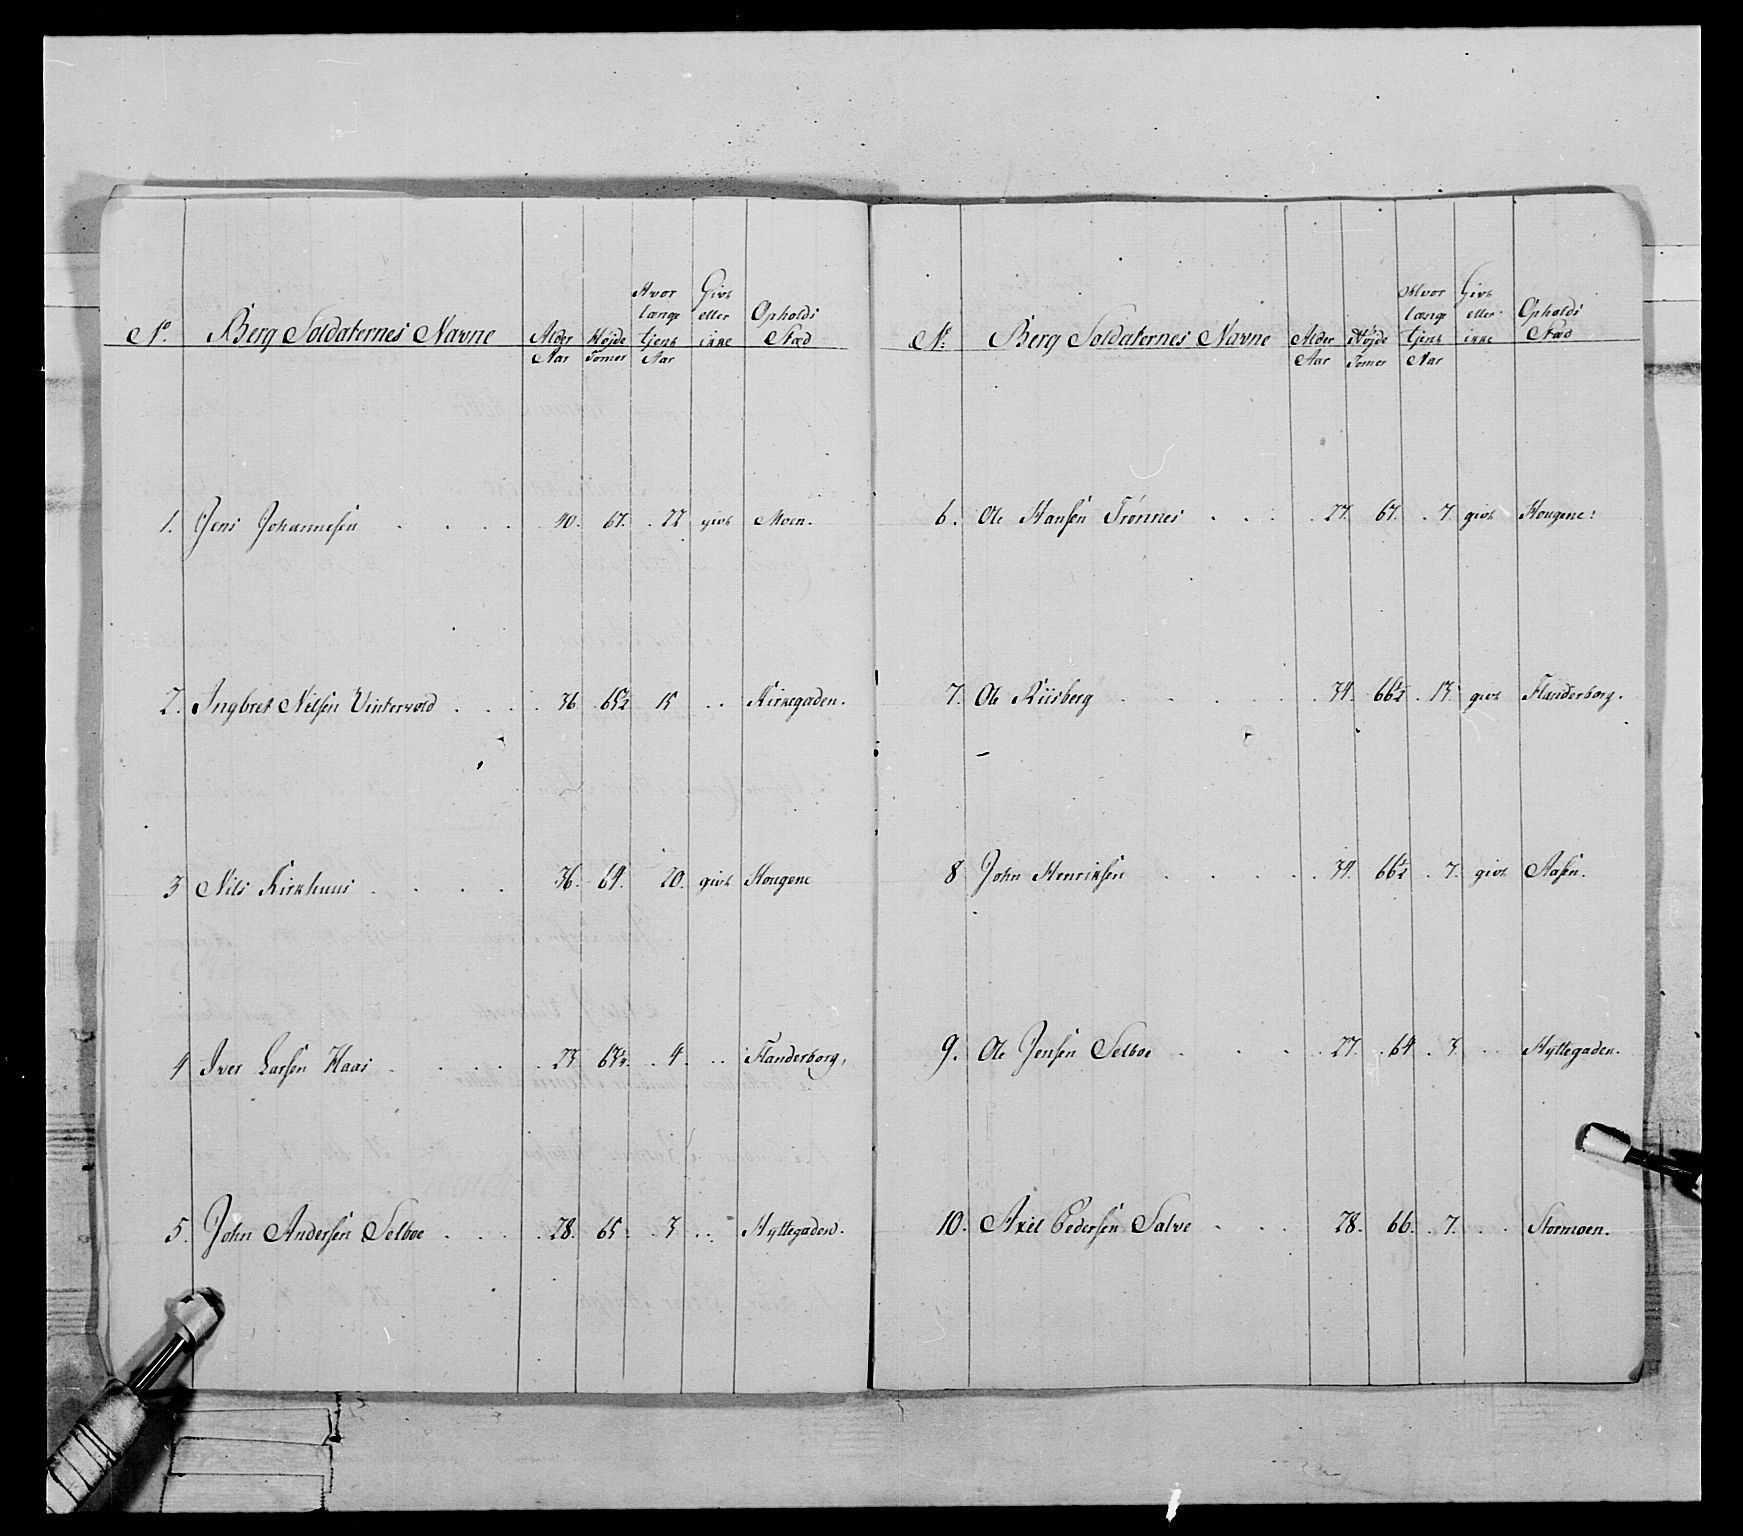 No. Berg Soldaternes Navne Alder Aar Højde Tomer Hvor længe tjent Aar Givt eller ikke Opholds Stæd
1. Jens Johannesen 40. 67. 22 givt Moen.
2. Ingbret Nilsen Vintervold 36 65½ 15 .. Kirkegaden.
3 Nils Kirkhuus 36. 64. 20. givt Hougene
4 Iver Larsen Haas 23. 63½. 4. .. Flanderborg,
5. John Andersen Selboe 28. 65. 3 .. Hyttegaden.
No. Berg Soldaternes Navne Alder Aar Højde Tomer Hvor længe tjent Aar Givt eller ikke Opholds Stæd
6. Ole Hansen Trønnes 27. 67. 7. givt Hougene:
7. Ole Riisberg 34. 66½ 13. givt Flanderborg.
8 John Henriksen 34. 66½ 7. givt Aasen.
9. Ole Jensen Selboe 27. 64 3. .. Hyttegaden.
10. Axel Pedersen Salve 28. 66. 7. .. Stormoen.